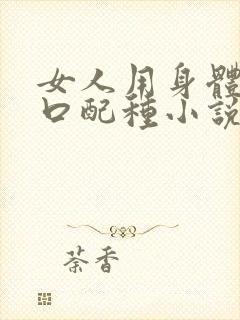 女人用身體
口配種小說
荼香